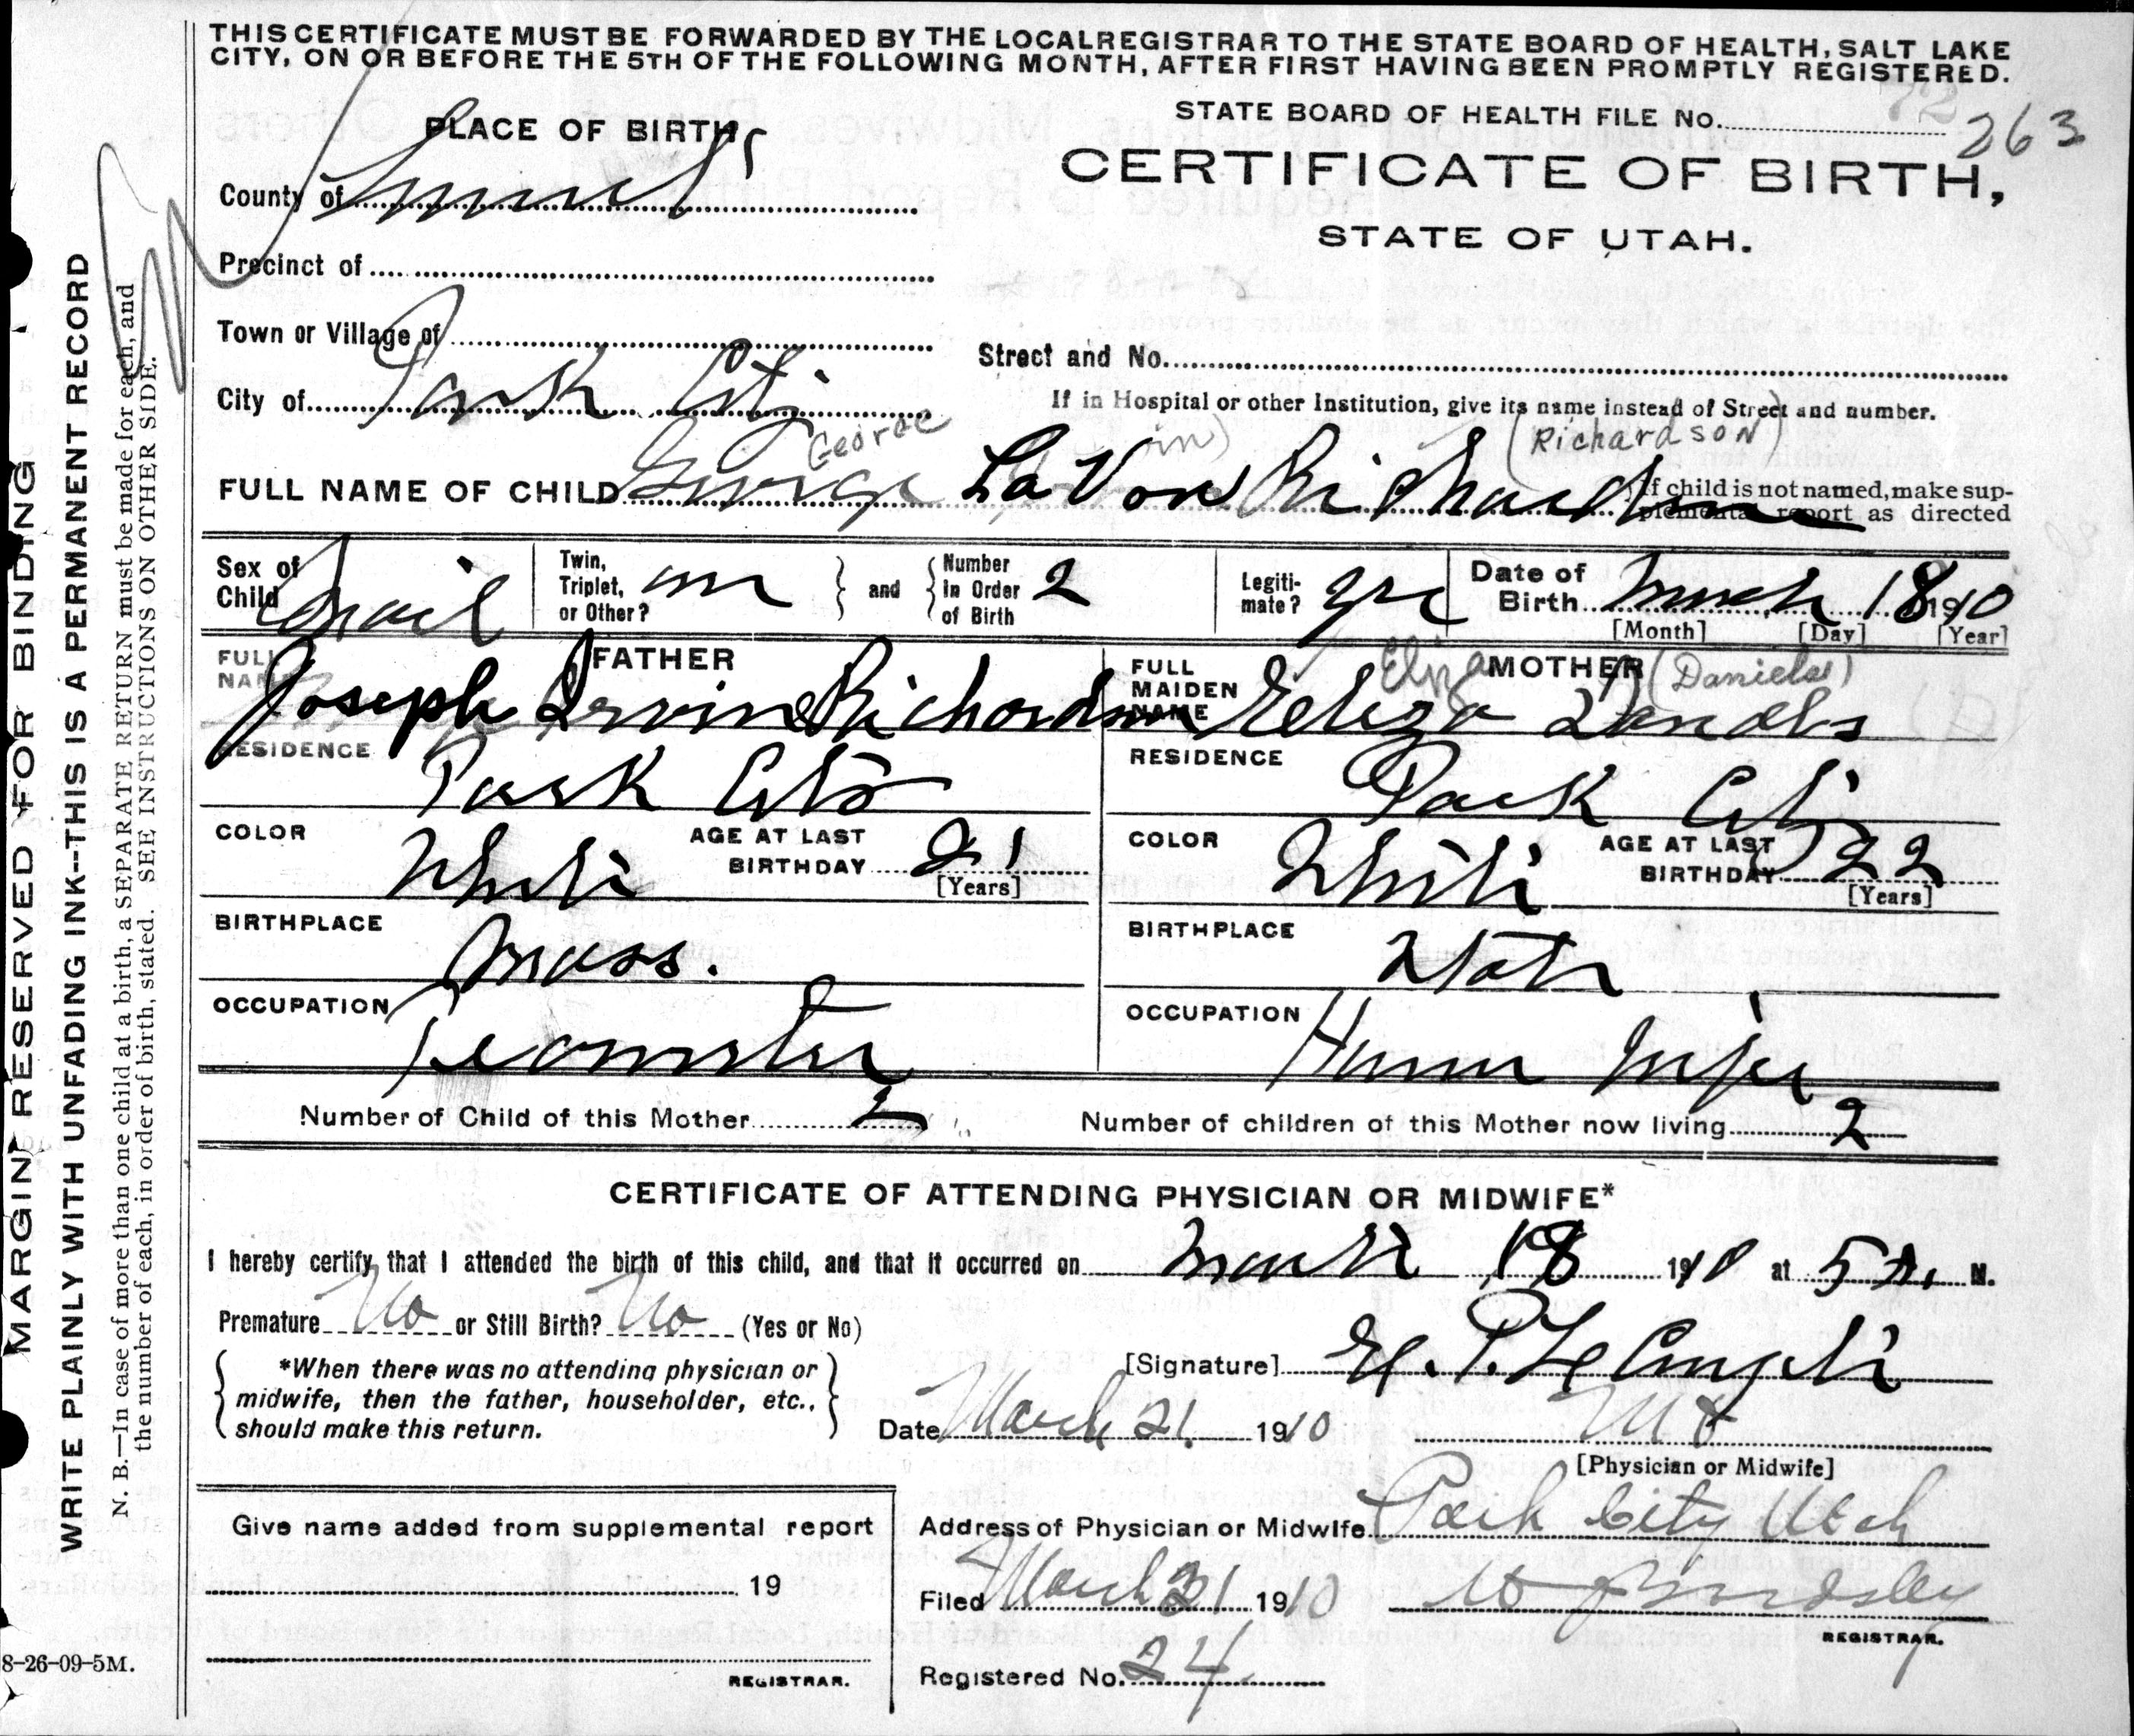 THIS CERTIFICATE MUST BE FORWARDED BY THE LOCAL REGISTRAR TO THE STATE BOARD OF HEALTH, SALT LAKE
CITY, ON OR BEFORE THE 5TH OF THE FOLLOWING MONTH, AFTER FIRST HAVING BEEN PROMPTLY REGISTERED.
STATE BOARD OF HEALTH FILE No. 72 263
PLACE OF BIRTH
CERTIFICATE OF BIRTH,
STATE OF UTAH.
County of Summit
Precinct of
Town or Village of
Street and No.
City of Park City
If in Hospital or other Institution, give its name instead of Street and number.
George (Richardson)
FULL NAME OF CHILD George LaVon Richardson
If child is not named, make sup-
plemental report as directed
Sex of Child
Twin, Triplet, or Other?
and
Number in Order of Birth 2
Legiti-mate? yes
Date of Birth March 18 1910
[Month] [Day] [Year]
FATHER
FULL NAME Joseph Irvine Richardson
RESIDENCE Park City
COLOR White
AGE AT LAST BIRTHDAY 21
[Years]
BIRTHPLACE Mass.
OCCUPATION Teamster
MOTHER
Eliza (Daniels)
FULL MAIDEN NAME Eliza Daniels
RESIDENCE Park City
COLOR White
AGE AT LAST BIRTHDAY 22
[Years]
BIRTHPLACE Utah
OCCUPATION House Wife
Number of Child of this Mother 2
Number of children of this Mother now living 2
CERTIFICATE OF ATTENDING PHYSICIAN OR MIDWIFE*
I hereby certify that I attended the birth of this child, and that it occurred on March 18 1910 at 5 M.
Premature No or Still Birth? No (Yes or No)
*When there was no attending physician or
midwife, then the father, householder, etc.,
should make this return.
[Signature] E. P. LeCompte
Date March 21 1910
MD
[Physician or Midwife]
Give name added from supplemental report
19
REGISTRAR.
Address of Physician or Midwife Park City Utah
Filed March 21 1910
REGISTRAR.
Registered No. 24
MARGIN RESERVED FOR BINDING
WRITE PLAINLY WITH UNFADING INK--THIS IS A PERMANENT RECORD
N. B.—In case of more than one child at a birth, a SEPARATE RETURN must be made for each, and
the number of each, in order of birth, stated. SEE INSTRUCTIONS ON OTHER SIDE.
8-26-09-5M.